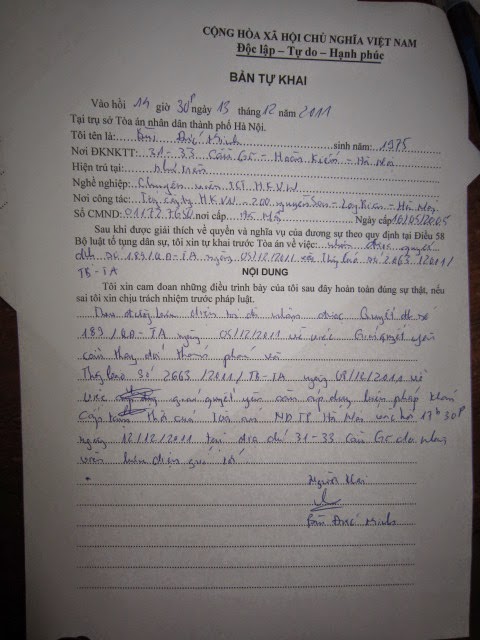 CỘNG HÒA XÃ HỘI CHỦ NGHĨA VIỆT NAM
Độc lập – Tự do – Hạnh phúc
BẢN TỰ KHAI
Vào hồi 14 giờ 30p ngày 13 tháng 12 năm 2011
Tại trụ sở Tòa án nhân dân thành phố Hà Nội.
Tôi tên là: Đức Minh sinh năm: 1975
Nơi ĐKNKTT: 31-33 Cầu Gỗ - Hoàn Kiếm - Hà Nội
Hiện trú tại: như trên
Nghề nghiệp: Chuyên viên HKVN
Nơi công tác: Tổng công ty HKVN - 200 Nguyễn Sơn - Long Biên - Hà Nội
Số CMND: nơi cấp: Hà Nội Ngày cấp 16/05/2005
Sau khi được giải thích về quyền và nghĩa vụ của đương sự theo quy định tại Điều 58
Bộ luật tố tụng dân sự, tôi xin tự khai trước Tòa án về việc: nhận được quyết
định số 189/QĐ-TA ngày 05/12/2011 và Thông báo số 2663/2011/
TB-TA
NỘI DUNG
Tôi xin cam đoan những điều trình bày của tôi sau đây hoàn toàn đúng sự thật, nếu
sai tôi xin chịu trách nhiệm trước pháp luật.
nhận được Quyết định số
189/QĐ-TA ngày 05/12/2011 về việc Giải quyết yêu
cầu thay đổi thẩm phán và
Thông báo số 2663/2011/TB-TA ngày 08/12/2011 về
việc giải quyết yêu cầu áp dụng biện pháp khẩn
cấp tạm thời của Tòa án ND TP Hà Nội vào hồi 17h30p
ngày 12/12/2011 tại địa chỉ 31-33 Cầu Gỗ do nhân
viên bưu điện gửi tới
Người khai
Đức Minh